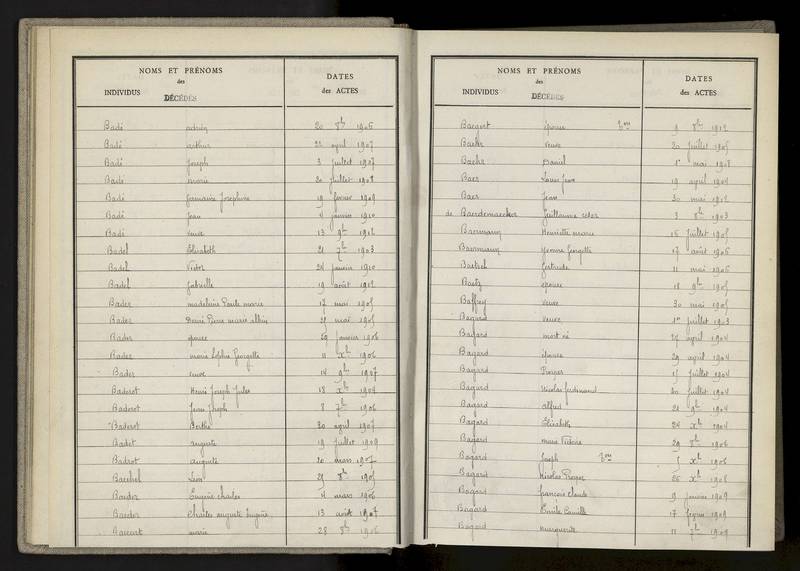 NOMS ET PRÉNOMS
des
INDIVIDUS DÉCÉDÉS
DATES
des ACTES
Badé adrien 20 8b 1906
Badé arthur 22 april 1907
Badé Joseph 3 juillet 1907
Badé marie 20 juillet 1908
Badé Germaine Joséphine 19 février 1909
Badé Jean 4 janvier 1910
Badé veuve 13 9b 1912
Badel Elisabeth 21 7b 1903
Badel Victor 24 janvier 1910
Badel Gabrielle 19 août 1912
Bader madeleine Paule marie 17 mai 1905
Bader Henri Pierre marie albin 29 mai 1905
Bader épouse 29 janvier 1906
Bader marie Sophie Georgette 11 Xb 1906
Bader veuve 14 9b 1907
Baderot Henri Joseph Jules 18 Xb 1904
Baderot Jean Joseph 8 7b 1906
Baderot Berthe 20 april 1907
Badet auguste 19 juillet 1909
Badrot auguste 20 mars 1907
Baechel Léon 29 8b 1905
Baeder Eugène charles 4 mars 1906
Baeder Charles auguste Eugène 13 août 1907
Baecert marie 28 8b 1906
NOMS ET PRÉNOMS
des
INDIVIDUS DÉCÉDÉS
DATES
des ACTES
Baegert épouse 9 8b 1912
Baehr veuve 20 juillet 1905
Baehr Daniel 1er mai 1908
Baer Louis Jean 19 april 1904
Baer Jean 30 mai 1912
de Baerdemaecker Guillaume 3 8b 1903
Baermann Henriette marie 15 juillet 1905
Baermann Yvonne Georgette 17 août 1906
Baetsel Gertrude 11 mai 1906
Baetz épouse 18 9b 1905
Baffrey veuve 30 mai 1905
Bagard veuve 1er juillet 1903
Bagard mort né 14 april 1904
Bagard épouse 29 april 1904
Bagard Prosper 15 juillet 1904
Bagard Nicolas ferdinand 20 juillet 1904
Bagard alfred 21 9b 1904
Bagard Elisabeth 24 Xb 1904
Bagard marie Victoire 29 8b 1906
Bagard Joseph 5 Xb 1906
Bagard Nicolas Prosper 26 Xb 1908
Bagard françois claude 9 janvier 1909
Bagard Emile Camille 17 février 1909
Bagard marguerite 11 7b 1909